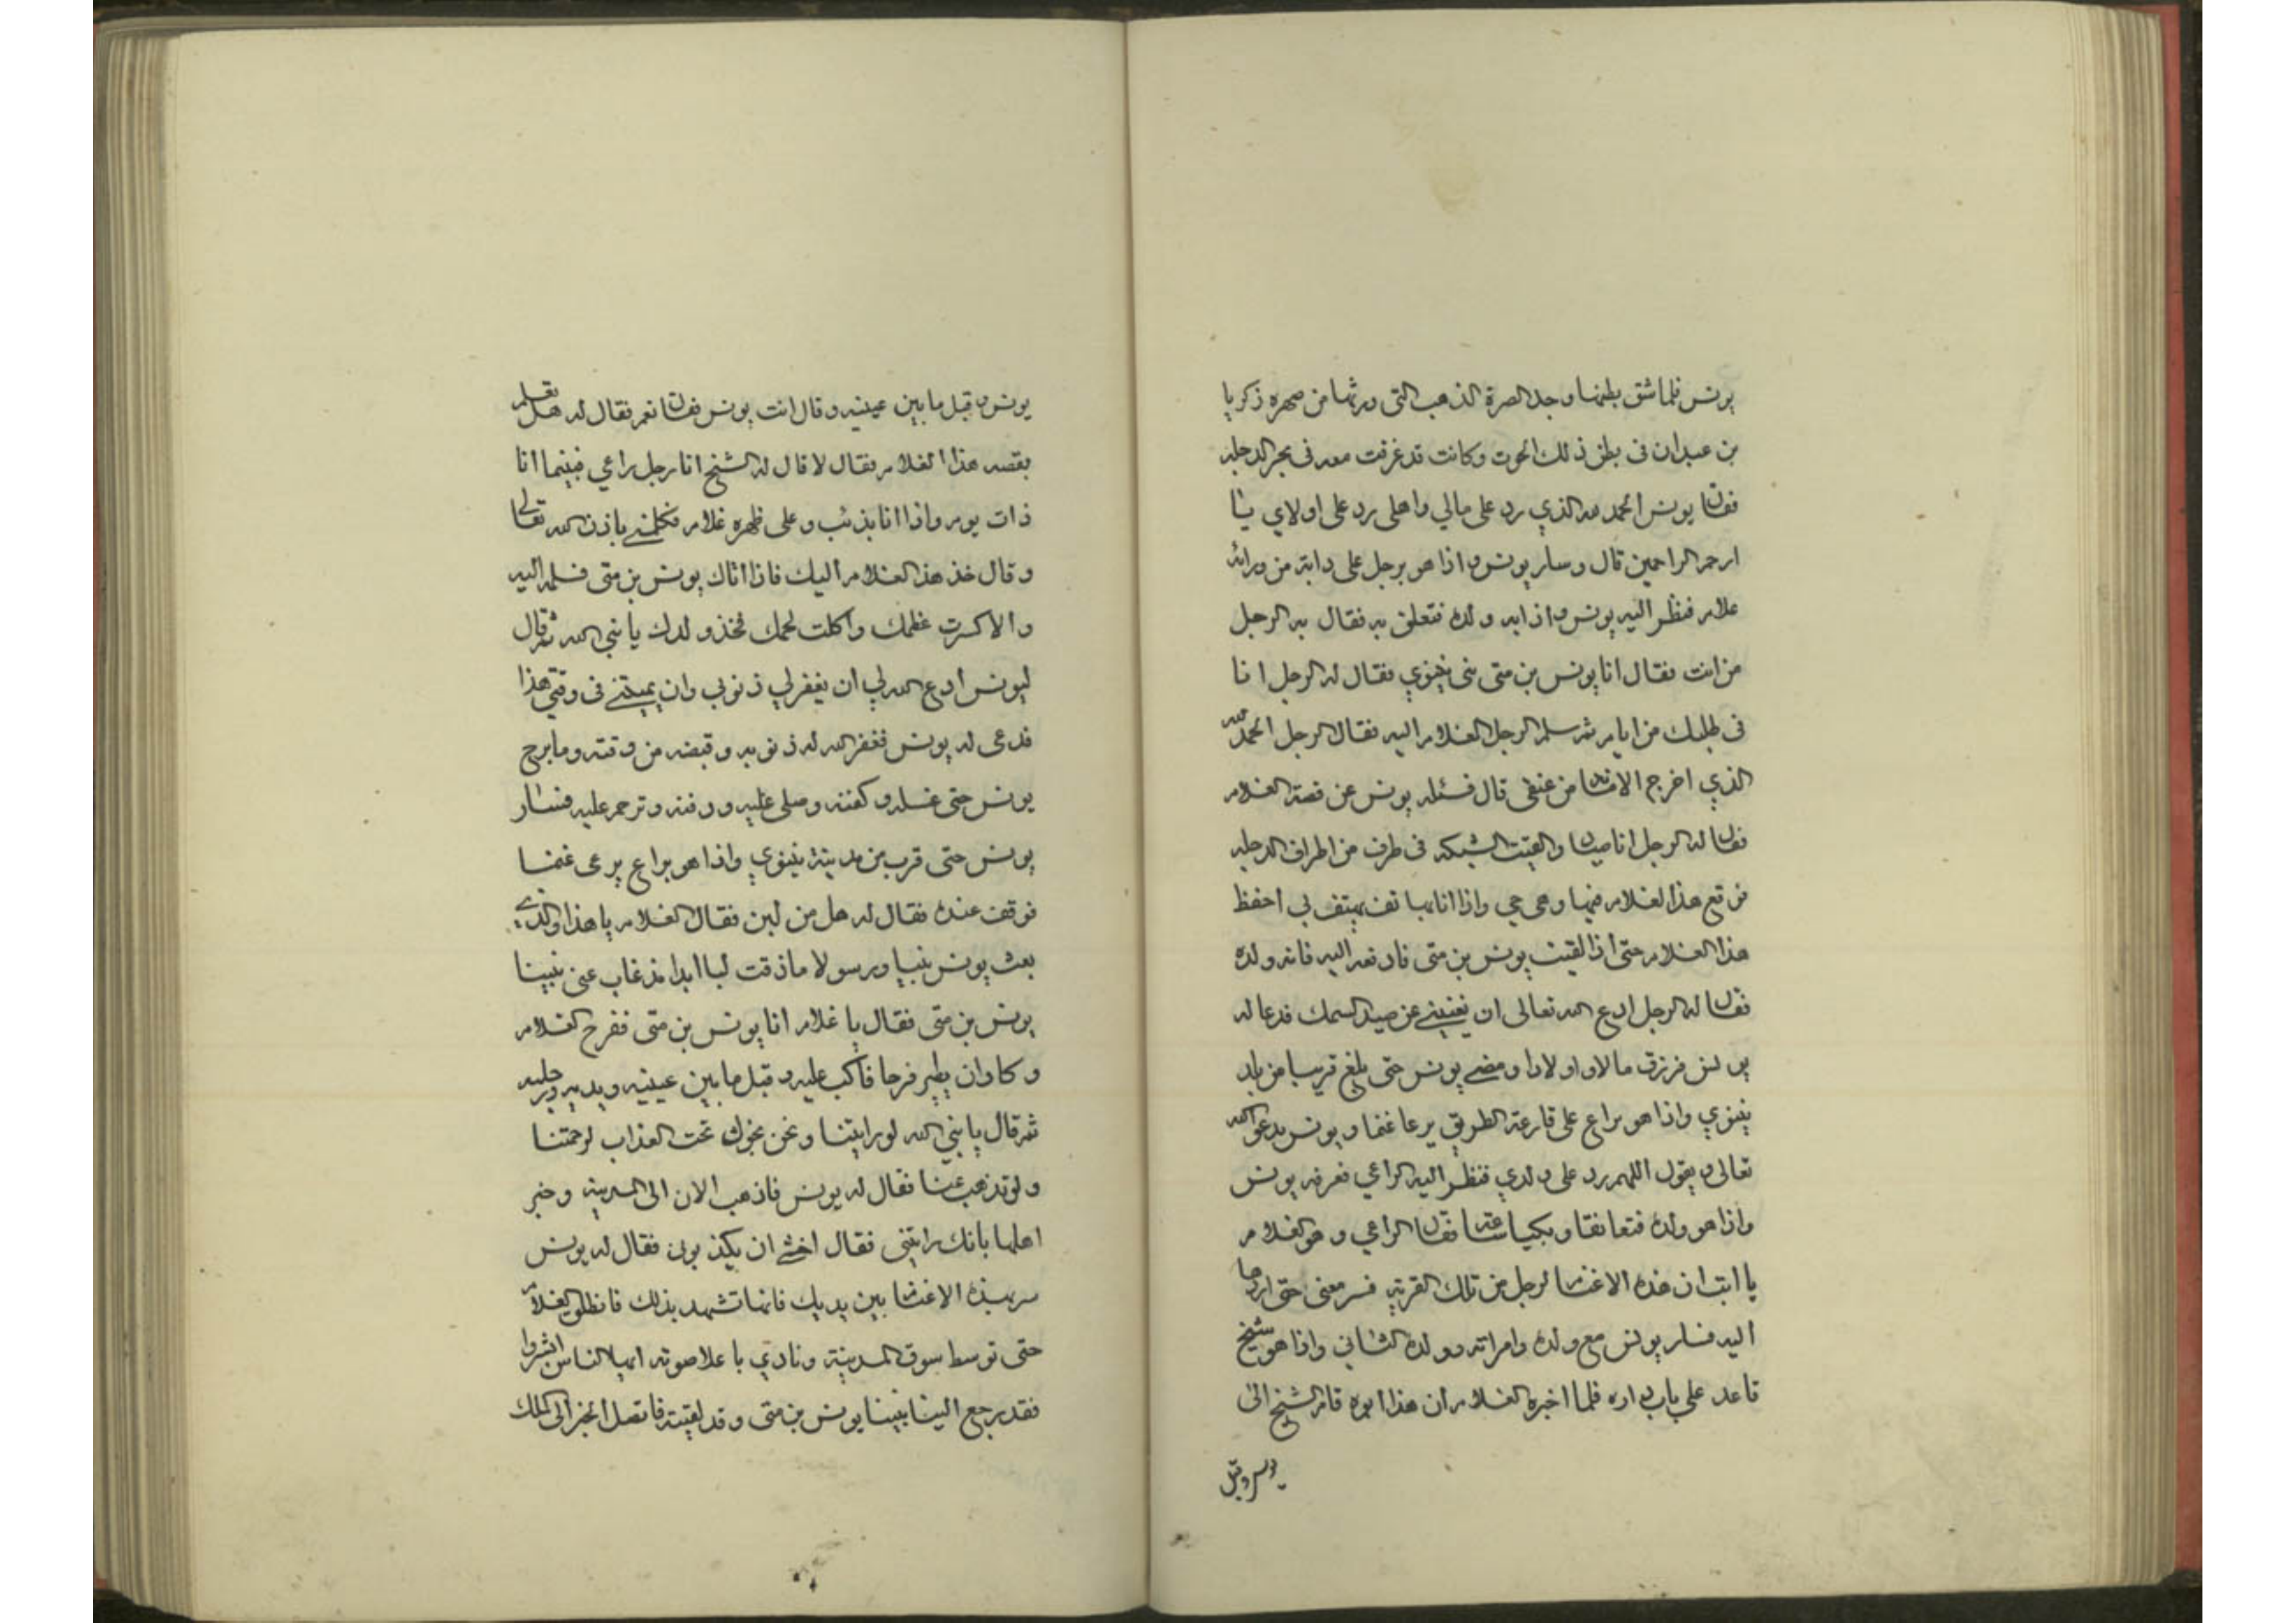 يونس فلما شق بطنها وجد الصرة الذهب التي ورثها من صهره ذكريا
بن عبدان في بطن ذلك الحوت وكانت قد غرقت معه في بحر الدجله
فقال يونس الحمد لله الذي رد على مالي واهلي رد على اولادي يا
ارحم الراحمين قال وسار يونس واذا هو برجل على دابة من ورائه
غلام فنظر اليه يونس واذا به ولده فتعلق به فقال به الرجل
من انت فقال انا يونس بن متى نبي نينوي فقال له الرجل انا
في طلبك من ايام ثم سلم الرجل الغلام اليه فقال الرجل الحمد لله
الذي اخرج الامانة من عنقي قال فسئله يونس عن قصة الغلام
فقال له الرجل انا صياد والقيت الشبكه في طرف من اطراف الدجله
فوقع هذا الغلام فيها وهي حي واذا انا بها تف يهتف بي احفظ
هذا الغلام حتى اذا لقيت يونس بن متى فادفعه اليه فانه ولده
فقال له الرجل ادع الله تعالى ان يغنيني عن صيد السمك فدعا له
يونس فرزق مالا واولادا ومضى يونس حتى بلغ قريبا من بلد
نينوي واذا هو براع على قارعة الطريق يرعا غنما ويونس يدعو الله
تعالى ويقول اللهم رد على ولدي فنظر اليه الراعي فعرفه يونس
واذا هو ولده فتعانقا وبكيا ساعة فقال الراعي وهو الغلام
يا ابت ان هذه الاغنام لرجل من تلك القرية فسر معي حتى اردها
اليه فسار يونس مع ولده وامراته وولده الثاني واذا هو شيخ
قاعد على باب داره فلما اخبره الغلام ان هذا ابوه قام الشيخ الى
يونس وقبل
يونس وقبل ما بين عينيه وقال انت يونس فقال نعم فقال له هل تعلم
بقصه هذا الغلام فقال لا قال له الشيخ انا رجل راعي فبينما انا
ذات يوم واذا انا بذئب وعلى ظهره غلام فكلمني باذن الله تعالى
وقال خذ هذا الغلام اليك فاذا اتاك يونس بن متى فسلمه اليه
والا كسرت عظمك واكلت لحمك فخذ ولدك يا نبي الله ثم قال
ليونس ادع الله لي ان يغفر لي ذنوبي وان يميتني في وقتي هذا
فدعى له يونس فغفر الله له ذنوبه وقبضه من وقته وما برح
يونس حتى غسله وكفنه وصلى عليه ودفنه وترحم عليه فسار
يونس حتى قرب من مدينة نينوي واذا هو براع يرعى غنما
فوقف عنده فقال له هل من لبن فقال الغلام يا هذا والذي
بعث يونس نبيا ورسولا ما ذقت لبنا ابدا مذ غاب عني نبينا
يونس بن متى فقال يا غلام انا يونس بن متى ففرح الغلام
وكا وان يطير فرحا فاكب عليه وقبل ما بين عينيه ويديه ورجليه
ثم قال يا نبي الله لو رايتنا ونحن نجول تحت العذاب لرحمتنا
ولو تذهب عنا فقال له يونس فاذهب الان الى المدينة وخبر
اهلها بانك رايتني فقال اخشى ان يكذبوني فقال له يونس
سر بهذه الاغنام بين يديك فانها تشهد بذلك فانطلق الغلام
حتى توسط سوق المدينة ونادي با علا صوته ايها الناس ابشروا
فقد رجع الينا نبينا يونس بن متى وقد لقيته فاتصل الخبر الى الملك